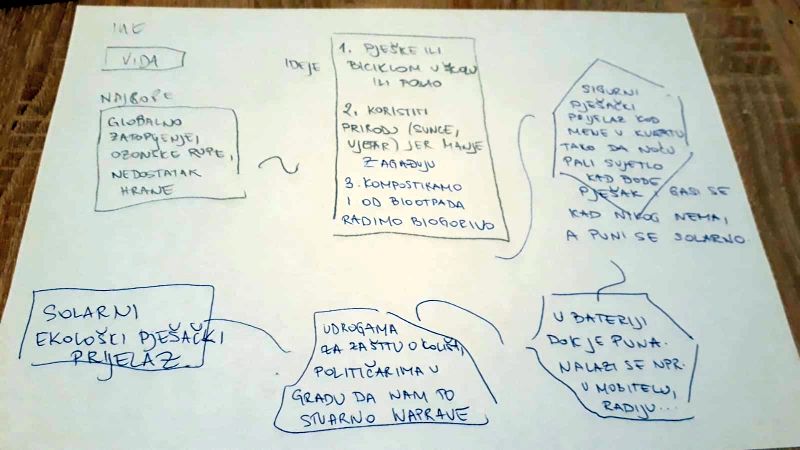 IME
VIDA
NAJGORE
GLOBALNO
ZATOPLJENJE,
OZONSKE RUPE,
NEDOSTATAK
HRANE
IDEJE
1. PJEŠKE ILI
BICIKLOM U ŠKOLU
ILI POSAO
2. KORISTITI
PRIRODU (SUNCE,
VJETAR) JER MANJE
ZAGAĐUJU
3. KOMPOSTIRAMO
I OD BIOOTPADA
RADIMO BIOGORIVO
SIGURNI
PJEŠAČKI
PRIJELAZ KOD
MENE U KVARTU
TAKO DA NOĆU
PALI SVJETLO
KAD BUDE
PJEŠAK I GASI SE
KAD NIKOG NEMA,
A PUNI SE SOLARNO.
U BATERIJI
DOK JE PUNA.
NALAZI SE NPR.
U MOBITELU,
RADIJU...
UDRUGAMA
ZA ZAŠTITU OKOLIŠA,
POLITIČARIMA U
GRADU DA NAM TO
STVARNO NAPRAVE
SOLARNI
EKOLOŠKI PJEŠAČKI
PRIJELAZ